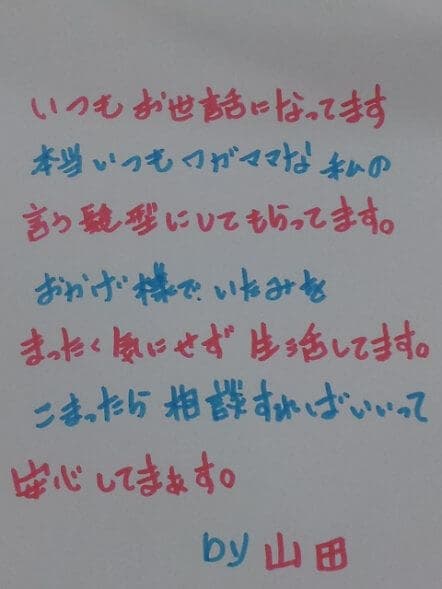 いつもお世話になってます
本当いつもワガママな私の
言う髪型にしてもらってます。
おかげ様で、いたみを
まったく気にせず生活してます。
こまったら相談すればいいって
安心してまぁす。
by 山田